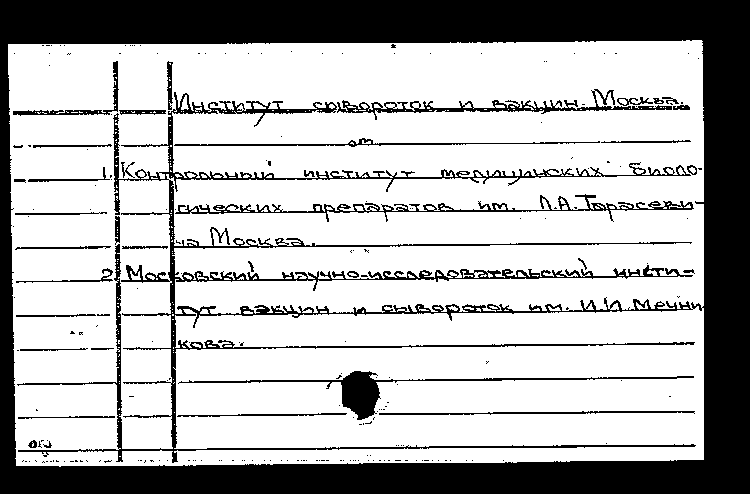 Институт сывороток и вакцин. Москва.
см.
1. Контрольный институт медицинских биоло-
гических препаратов им. Л.А. Тарасеви-
ча Москва.
2. Московский научно-исследовательский инсти-
тут вакцин и сывороток им. И.И Мечни
кова.